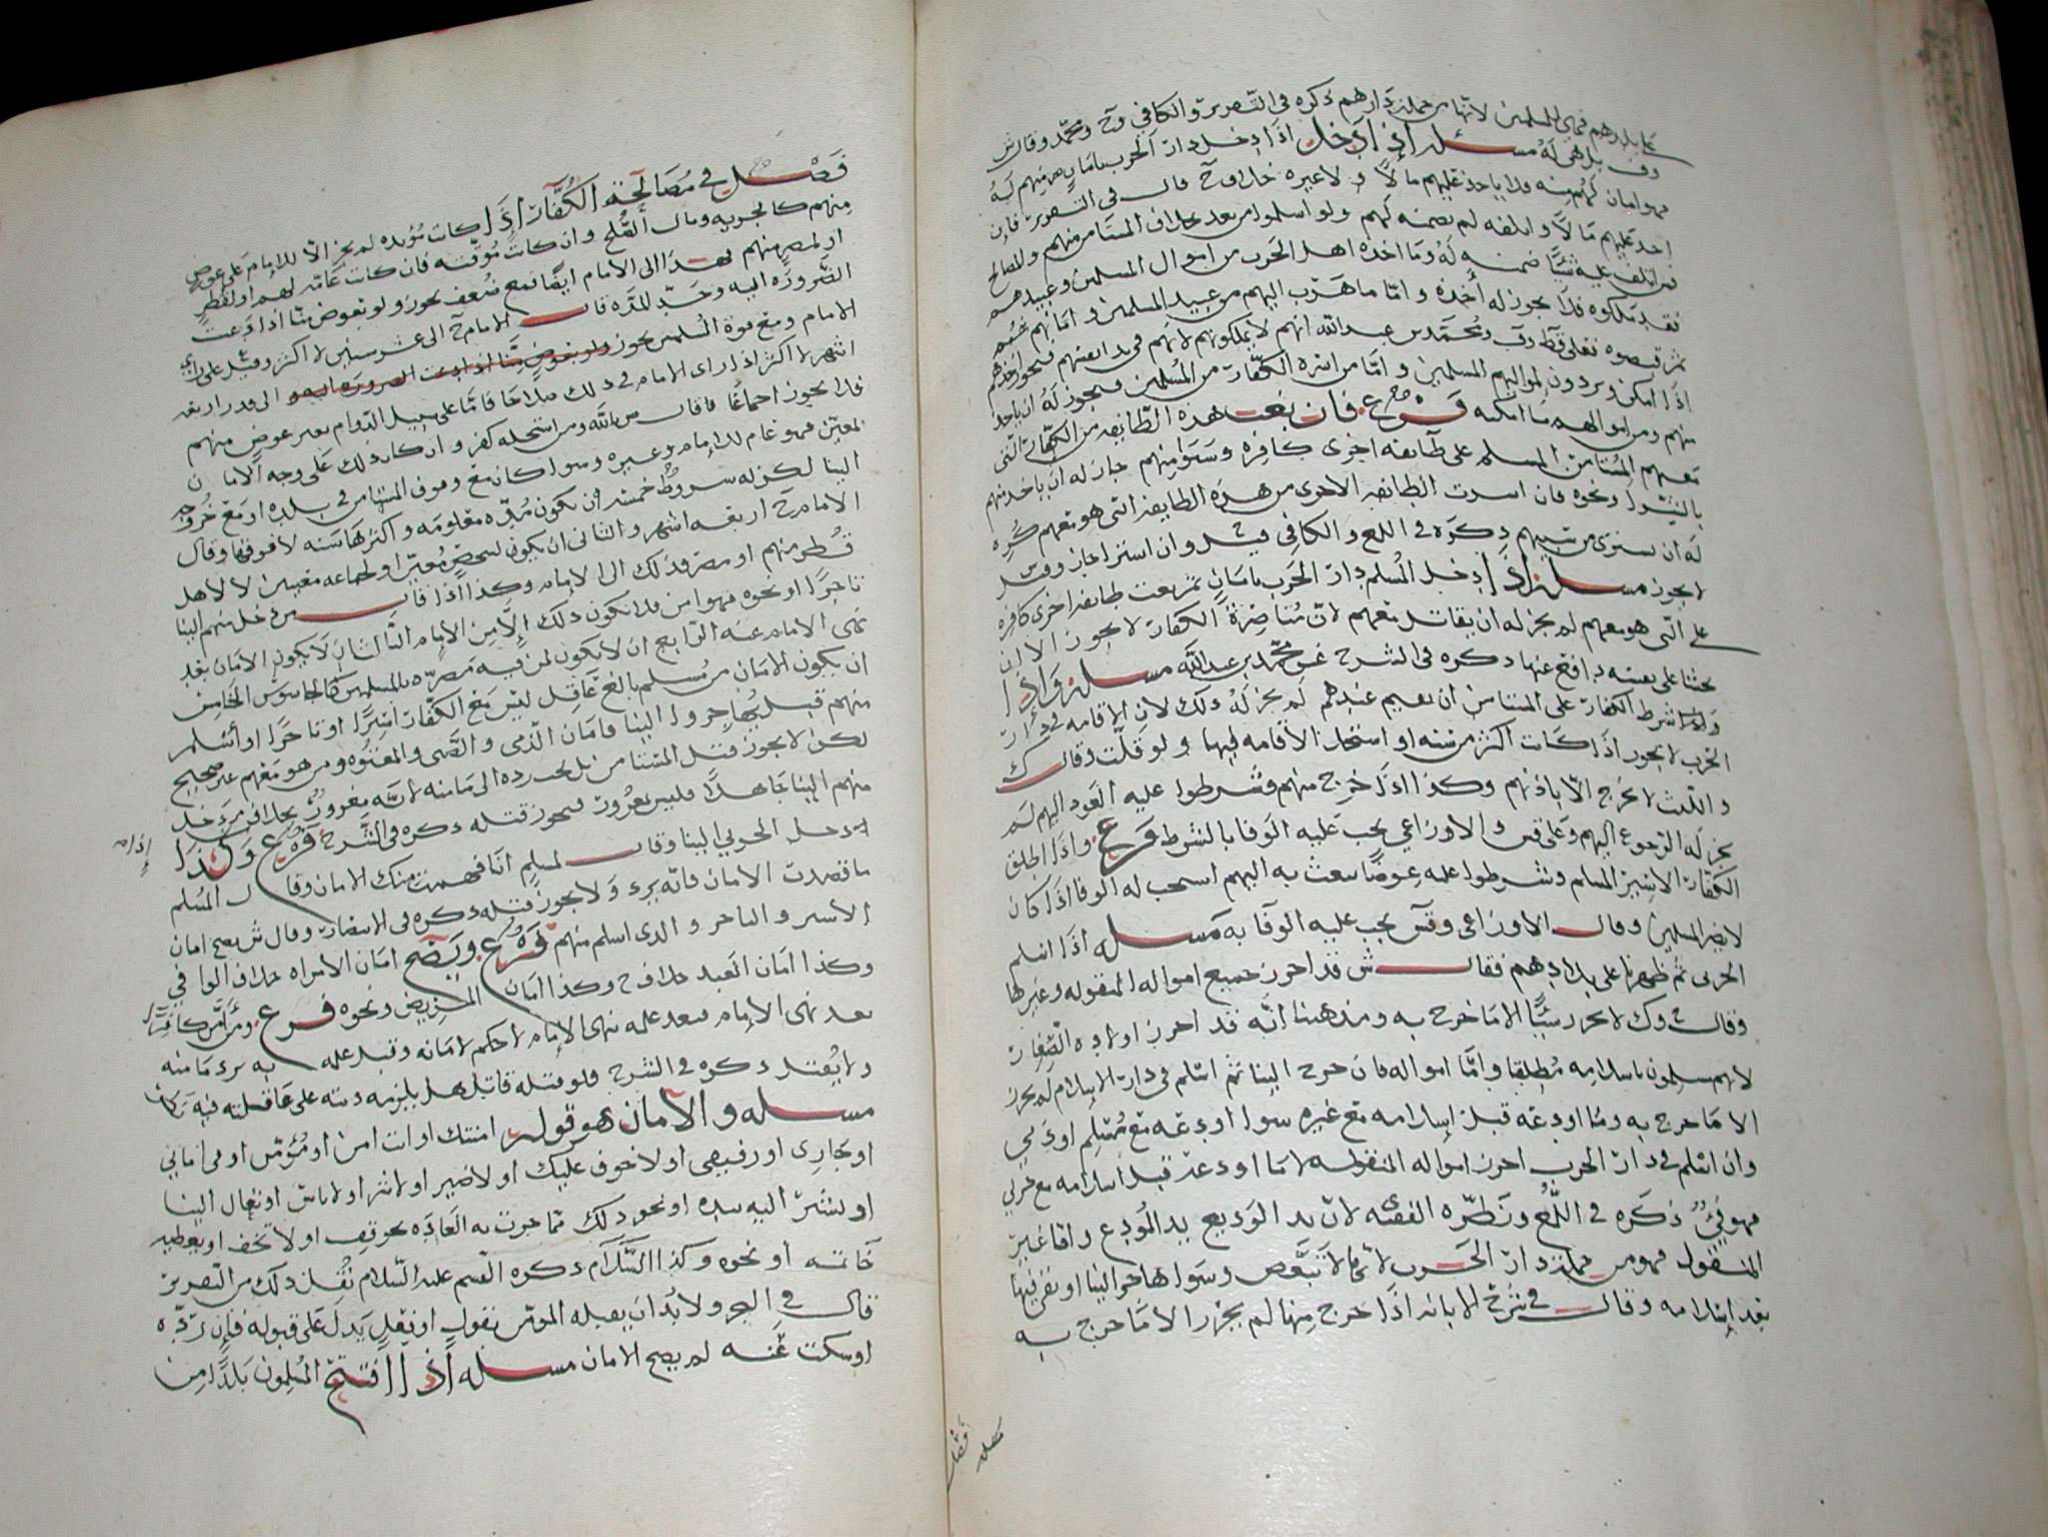 على بلادهم فهي للمسلمين لانها من جملة دارهم ذكره في التقرير والكافي وح ومحمد وقال ش
وف بل هي له مسئله اذا دخل دار الحرب بامان منهم له
فهو امان لهم منه فلا ياخذ عليهم مالا ولا غيره خلاف ح قال في التقرير فان
اخذ عليهم مالا واتلفه لم يضمنه لهم ولو اسلموا من بعد خلاف المستامن منهم والمصالح
فمن اتلف عليه شيا ضمنه له وما اخذه اهل الحرب من اموال المسلمين وعبيدهم
فقد ملكوه فلا يجوز له اخذه واما ما هرب اليهم من عبيد المسلمين واماتهم
ثم قبضوه فعلى قول ط وف ومحمد بن عبدالله انهم لا يملكونهم لانهم في يد انفسهم فيجوز اخذهم
اذا امكن ويردون لمواليهم المسلمين واما من اسره الكفار من المسلمين فيجوز له ان ياخذ
منهم ومن اموالهم ما امكنه فرع فان بغت هذه الطايفه من الكفار التي
معهم المستامن المسلم على طايفه اخرى كافره وسبوا منهم جاز له ان ياخذ منهم
بالشراء ونحوه فان اسرت الطايفه الاخرى من هذه الطايفه التي هو معهم كره
له ان يشترى من سبيهم ذكره في اللمع والكافي قيل وان اشترا جاز وقيل
لا يجوز مسئله اذا دخل المسلم دار الحرب بامان ثم بغت طايفه اخرى كافره
على التي هو معهم لم يجز له ان يقاتل معهم لان مناصرة الكفار لا يجوز الا ان
يخشا على نفسه دافع عنها ذكره في الشرح عن محمد بن عبدالله مسئله واذا
واذا شرط الكفار على المستامن ان يقيم عندهم لم يجز له ذلك لان الاقامه في دار
الحرب لا يجوز اذا كانت اكثر من سنه او استحل الاقامه فيها ولو قلت وقال ك
والليث لا يخرج الا باذنهم وكذا اذا خرج منهم وشرطوا عليه العود اليهم لم
يجز له الرجوع اليهم وعلى قول والاوزاعي يجب عليه الوفا بالشرط فرع واذا اطلق
الكفار الاسير المسلم وشرطوا عليه عوضا يبعث به اليهم استحب له الوفا اذا كان
لا يضر المسلمين وقال الاوزاعي وقش يجب عليه الوفا به مسئله اذا اسلم
الحربي ثم ظهرنا على بلادهم فقال ش قد احرز جميع امواله المنقوله وغيرها
وقال ح وك لا يحرز شيا الا ما خرج به ومذهبنا انه قد احرز اولاده الصغار
لانهم مسلمون باسلامه مطلقا واما امواله فان خرج الينا ثم اسلم في دار الاسلام لم يحرز
الا ما خرج به وما اودعه قبل اسلامه مع غيره سوا اودعه مع مسلم او ذمي
وان اسلم في دار الحرب احرز امواله المنقوله لا ما اودعه قبل اسلامه مع حربي
فهو فيء ذكره في اللمع ونظره الفقيه لان يد الوديع يد المودع واما غير
المنقول فهو من جملة دار الحرب لانها لا تتبعض وسوا هاجر الينا او بقي فيها
بعد اسلامه وقال في شرح الابانه اذا خرج منها لم يحرز الا ما خرج به
مسله فصل
فصل في مصالحة الكفار اذا كانت مؤبده لم يجز الا للامام على عوض
منهم كالجزيه ومال الصلح وان كانت مؤقته فان كانت عامه لهم او لقطر
او لمصر منهم فهذا الى الامام ايضا فمع ضعف يجوز ولو بعوض منا اذا دعت
الضروره اليه وحد المده قال الامام ح الى عشر سنين لا اكثر وقيل على راي
الامام ومع قوة المسلمين يجوز ولو بعوض منا اذا دعت الضروره اليه والى قدر اربعه
اشهر لا اكثر اذا راى الامام في ذلك صلاحا فاما على سبيل الدوام بغير عوض منهم
فلا يجوز اجماعا فاقال ص بالله ومن استحله كفر وان كان ذلك على وجه الامان
لمعين فهو عام للامام وغيره وسوا كان مع وقوف المستامن في بلده او مع خروجه
الينا لكن له شروط خمسه ان يكون مده معلومه واكثرها سنه لا فوقها وقال
الامام ح اربعه اشهر والثاني ان يكون لشخص معين او لجماعه معينين لا لاهل
قطر منهم او مصر فذلك الى الامام وكذا اذا قال من دخل منهم الينا
تاجرا او نحوه فهو امن فلا يكون ذلك الا من الامام الثالث ان لا يكون الامان بعد
نهى الامام عنه الرابع ان لا يكون لمن فيه مضره بالمسلمين كالجاسوس الخامس
ان يكون الامان من مسلم بالغ عاقل ليس مع الكفار اسيرا او تاجرا او اسلم
منهم قبل يهاجروا الينا فامان الذمي والصبي والمعتوه ومن هو معهم غير صحيح
لكن لا يجوز قتل المستامن بل يجب رده الى مامنه لانه مغرور بخلاف من دخل
منهم الينا جاهلا فليس بمغرور فيجوز قتله ذكره في الشرح فرع وكذا اذا
دخل الحربي الينا وقال لمسلم انا فهمت منك الامان وقال المسلم
ما قصدت الامان فانه يرد ولا يجوز قتله ذكره في الانتصار وقال ش يصح امان
الاسير والتاجر والذي اسلم منهم فرع ويصح امان المراه خلاف الوافي
وكذا امان العبد خلاف ح وكذا امان المريض ونحوه فرع ومن امن كافرا
بعد نهى الامام بعد علمه بنهى الامام لا حكم لامانه وقبل علمه به يرد مامنه
ولا يقتل ذكره في الشرح فلو قتله قاتل هل يلزمه ديته على عاقلته فيه
مسله والامان هو قوله امنتك او انت امن او مؤمن او في اماني
او جاري او رفيقي او لا خوف عليك او لا ضير او لا شر او لا باس او تعال الينا
او بشير اليه بيده او نحو ذلك مما جرت به العاده نحو قف او لا تخف او يعطيه
خاتمه او نحوه وكذا السلام ذكره القسم عليه السلام نقل ذلك من التقرير
قال في البحر ولا بد ان يقبله المؤمن بقول او فعل يدل على قبوله فان رده
او سكت عنه لم يصح الامان مسله اذا افتتح المسلمون بلدا من